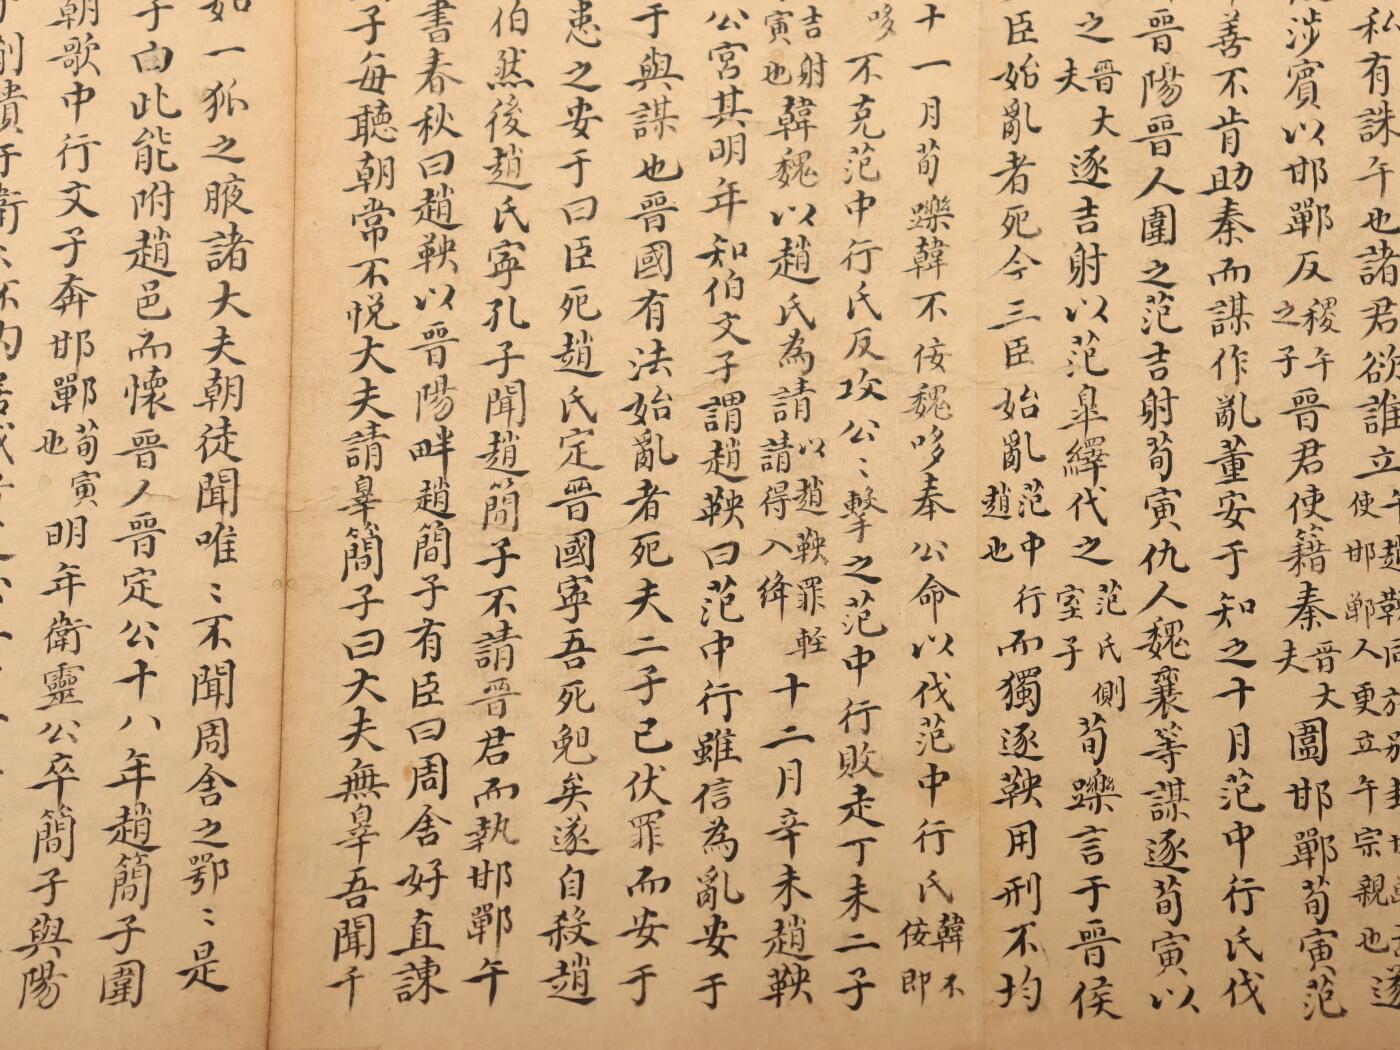 私有誅午也諸君欲誰立使邯鄲人更立午宗親也遂
涉賓以邯鄲反稷午之子晉君使籍秦晉大夫圍邯鄲荀寅范
善不肯助秦而謀作亂董安于知之十月范中行氏伐
晉陽晉人圍之范吉射荀寅仇人魏襄等謀逐荀寅以
之晉大夫逐吉射以范皐繹代之范氏側室子荀躒言于晉侯
臣始亂者死今三臣始亂范中趙也行而獨逐鞅用刑不均
十一月荀躒韓不侫魏哆奉公命以伐范中行氏韓不侫即
哆不克范中行氏反攻公〻擊之范中行敗走丁未二子
吉射寅也韓魏以趙氏為請以趙鞅罪輕請得入絳十二月辛未趙鞅
公宮其明年知伯文子謂趙鞅曰范中行雖信為亂安于
于與謀也晉國有法始亂者死夫二子已伏罪而安于
患之安于曰臣死趙氏定晉國寧吾死𠒎矣遂自殺趙
伯然後趙氏寧孔子聞趙簡子不請晉君而執邯鄲午
書春秋曰趙鞅以晉陽畔趙簡子有臣曰周舍好直諫
子每聽朝常不悅大夫請辠簡子曰大夫無辠吾聞千
如一狐之腋諸大夫朝徒聞唯〻不聞周舍之鄂〻是
子由此能附趙邑而懷晉人晉定公十八年趙簡子圍
朝歌中行文子奔邯鄲荀寅也明年衛靈公卒簡子與陽